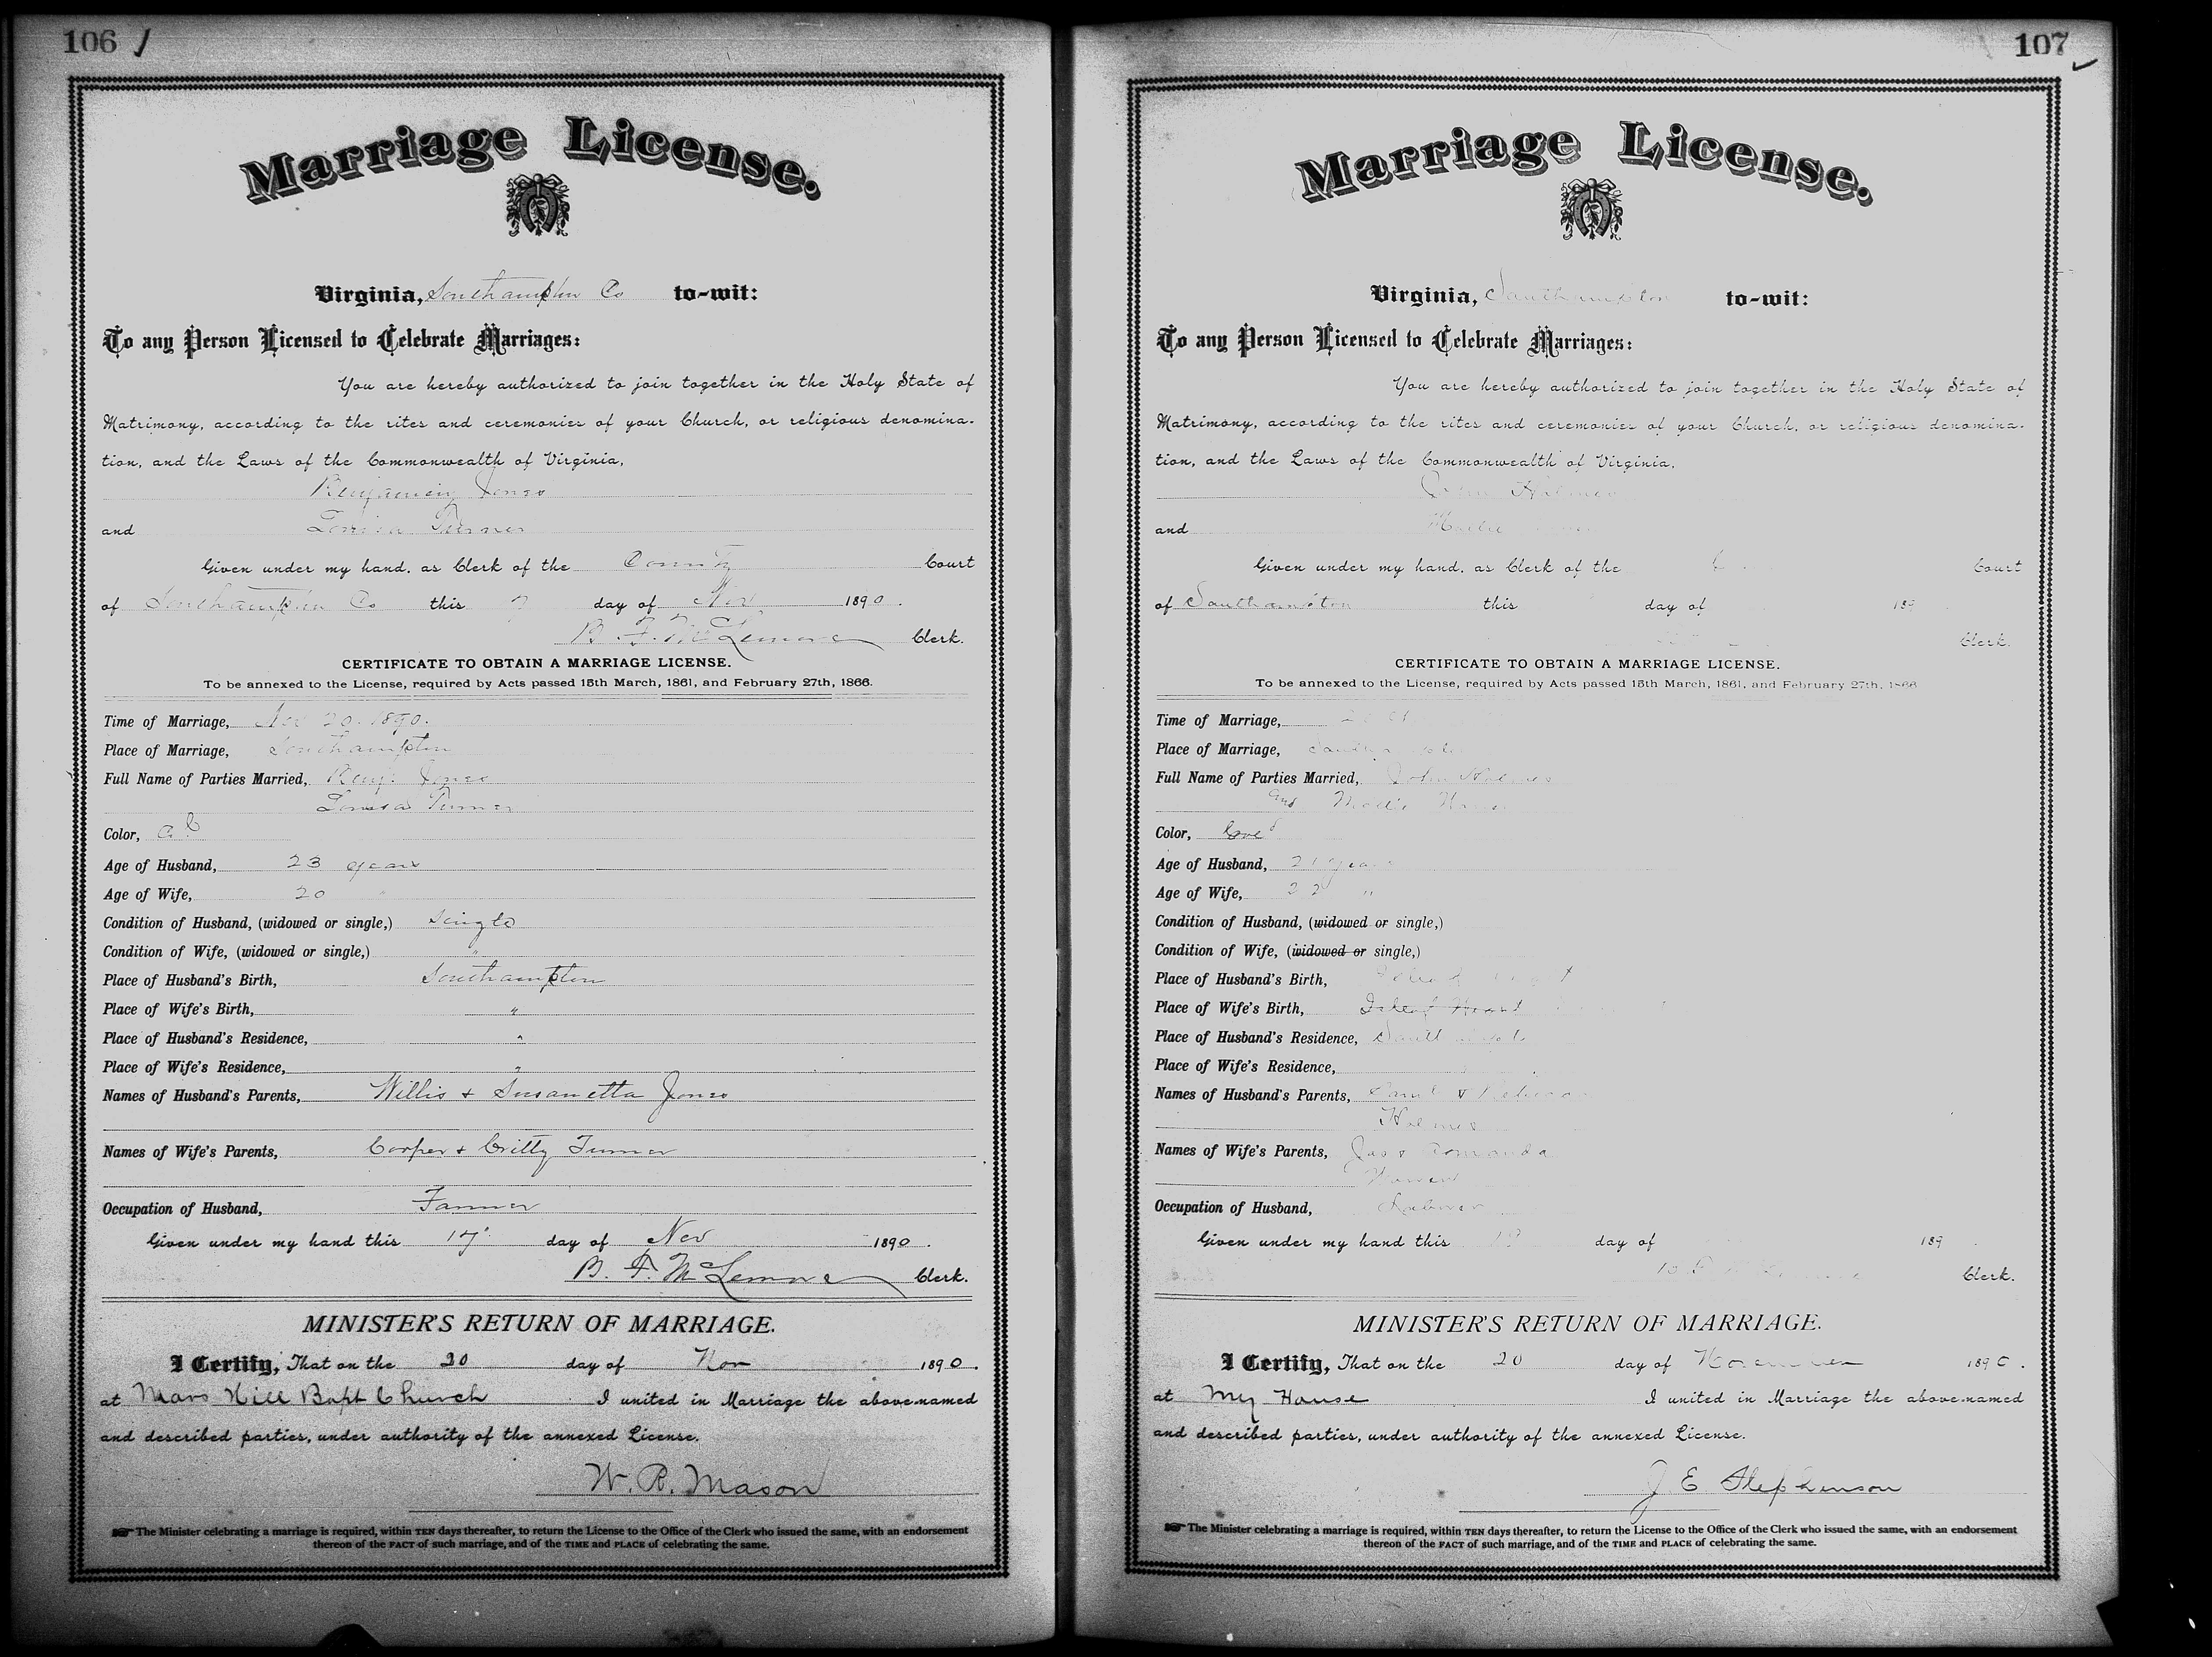 106
Marriage License.
Virginia, Southampton Co to-wit:
To any Person Licensed to Celebrate Marriages:
You are hereby authorized to join together in the Holy State of
Matrimony, according to the rites and ceremonies of your Church, or religious denomina-
tion, and the Laws of the Commonwealth of Virginia,
Benjamin Jones
and Louisa Turner
Given under my hand, as Clerk of the County Court
of Southampton Co this day of Nov 1890.
B. F. McLemore Clerk.
CERTIFICATE TO OBTAIN A MARRIAGE LICENSE.
To be annexed to the License, required by Acts passed 15th March, 1861, and February 27th, 1866.
Time of Marriage, Nov 20. 1890.
Place of Marriage, Southampton
Full Name of Parties Married, Benj. Jones
Louisa Turner
Color, Cold
Age of Husband, 23 years
Age of Wife, 20 "
Condition of Husband, (widowed or single,) single
Condition of Wife, (widowed or single,) "
Place of Husband's Birth, Southampton
Place of Wife's Birth, "
Place of Husband's Residence, "
Place of Wife's Residence, "
Names of Husband's Parents, Willis + Susanetta Jones
Names of Wife's Parents, Cooper + Critty Turner
Occupation of Husband, Farmer
Given under my hand this 17 day of Nov 1890.
B. F. McLemore Clerk.
MINISTER'S RETURN OF MARRIAGE.
I Certify, That on the 20 day of Nov 1890.
at Mars Hill Bapt Church I united in Marriage the above-named
and described parties, under authority of the annexed License.
W. R. Mason
The Minister celebrating a marriage is required, within TEN days thereafter, to return the License to the Office of the Clerk who issued the same, with an endorsement
thereon of the FACT of such marriage, and of the TIME and PLACE of celebrating the same.
107
Marriage License.
Virginia, Southampton to-wit:
To any Person Licensed to Celebrate Marriages:
You are hereby authorized to join together in the Holy State of
Matrimony, according to the rites and ceremonies of your Church, or religious denomina-
tion, and the Laws of the Commonwealth of Virginia,
John Holmes
and
Given under my hand, as Clerk of the Court
of Southampton this day of 189
Clerk.
CERTIFICATE TO OBTAIN A MARRIAGE LICENSE.
To be annexed to the License, required by Acts passed 15th March, 1861, and February 27th, 1866
Time of Marriage,
Place of Marriage,
Full Name of Parties Married, John Holmes
and
Color,
Age of Husband, 21 years
Age of Wife, 22 "
Condition of Husband, (widowed or single,)
Condition of Wife, (widowed or single,)
Place of Husband's Birth,
Place of Wife's Birth, Isle of
Place of Husband's Residence,
Place of Wife's Residence,
Names of Husband's Parents,
Holmes
Names of Wife's Parents, Jas &
Occupation of Husband,
Given under my hand this day of 189
Clerk.
MINISTER'S RETURN OF MARRIAGE.
I Certify, That on the 20 day of November 1890.
at My House I united in Marriage the above-named
and described parties, under authority of the annexed License.
J E Stephenson
The Minister celebrating a marriage is required, within TEN days thereafter, to return the License to the Office of the Clerk who issued the same, with an endorsement
thereon of the FACT of such marriage, and of the TIME and PLACE of celebrating the same.